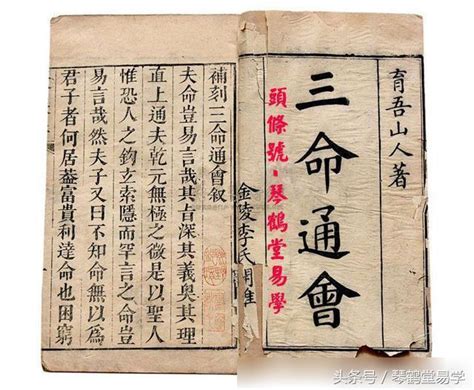 育吾山人著
三命通會
頭條號·琴鶴堂易學
金陵李氏
補刻三命通會叙
夫命豈易言哉其旨深其義奥其理
直上通夫乾元無極之微是以聖人
惟恐人之鈎玄索隱而罕言之命豈
易言哉然夫子又曰不知命無以為
君子者何居蓋富貴利達命也困窮
头条号 / 琴鹤堂易学